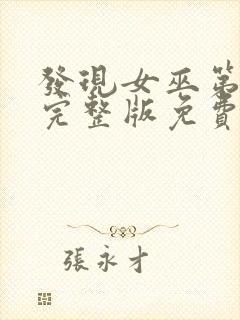 發現女巫第
完整版免費
張永才